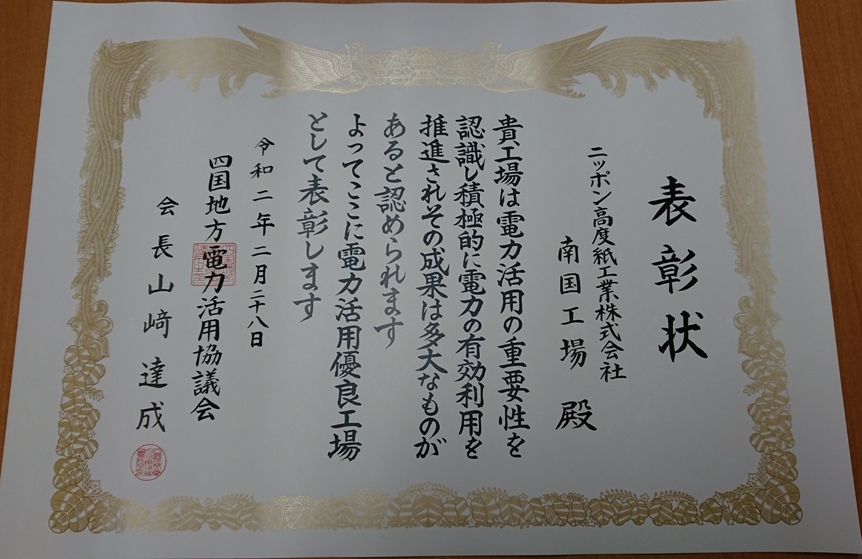 表彰状
ニッポン高度紙工業株式会社
南国工場 殿
貴工場は電力活用の重要性を
認識し積極的に電力の有効利用を
推進されその成果は多大なものが
あると認められます
よってここに電力活用優良工場
として表彰します
令和二年二月二十八日
四国地方電力活用協議会
会長 山﨑 達成